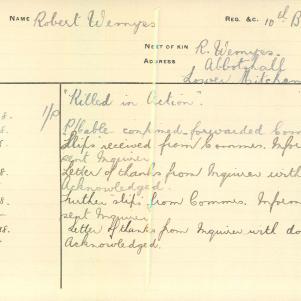 NAME Robert Wemyss REG. &C. 10th B
NEXT OF KIN R. Wemyss.
ADDRESS Abbotshall
Lower Mitcham
8. 1/0 "Killed in Action".
P/Cable confirmed-forwarded Com
8. Slips received from Commrs. Infor
sent Inquirer
8. Letter of thanks from Inquirer with
Acknowledged.
8. Further slips from Commrs. Inform
sent Inquirer
18. Letter of thanks from Inquirer with do
Acknowledged.